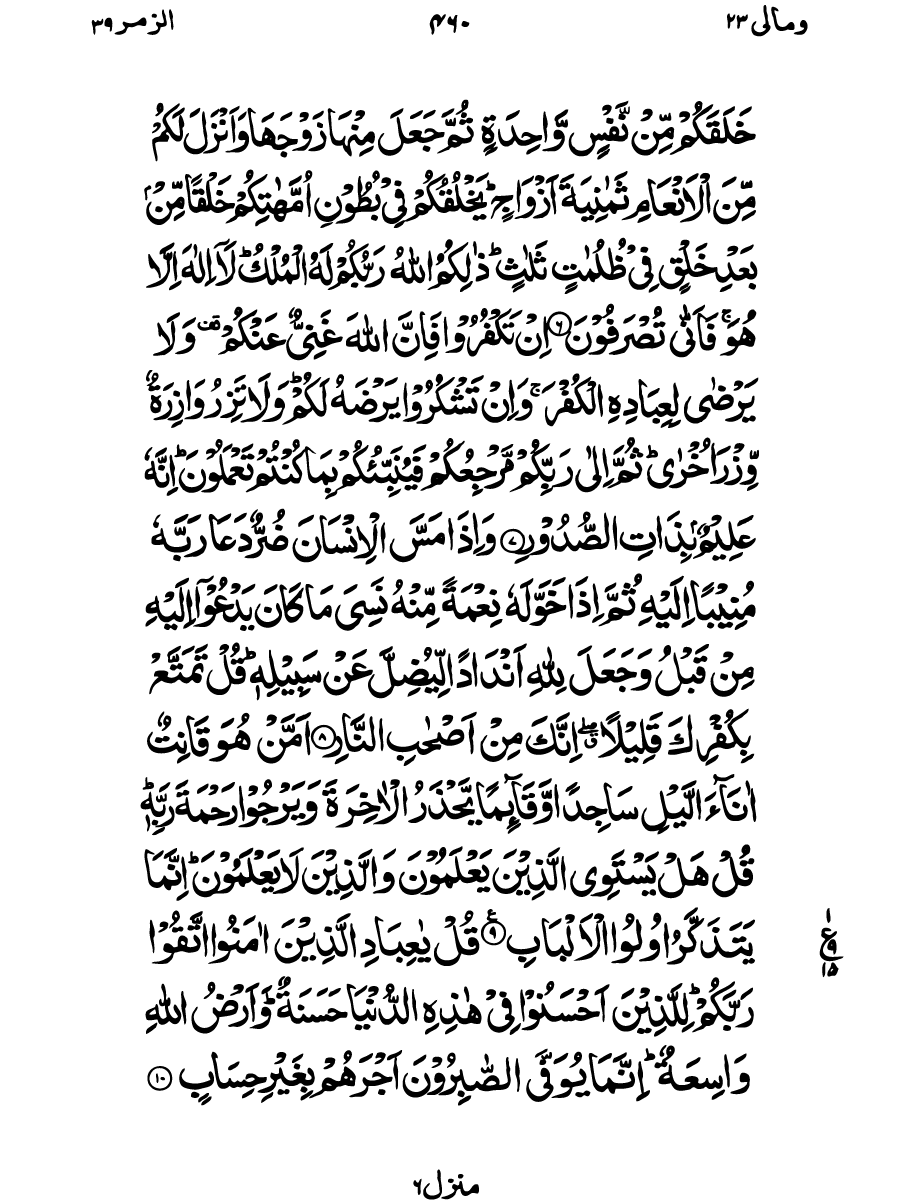 ومالی ٢٣ ۴٦٠ الزمر ٣٩
خَلَقَكُمْ مِّنْ نَّفْسٍ وَّاحِدَةٍ ثُمَّ جَعَلَ مِنْهَا زَوْجَهَا وَاَنْزَلَ لَكُمْ
مِّنَ الْاَنْعَامِ ثَمٰنِيَةَ اَزْوَاجٍ ؕ يَخْلُقُكُمْ فِيْ بُطُوْنِ اُمَّهٰتِكُمْ خَلْقًا مِّنْۢ
بَعْدِ خَلْقٍ فِيْ ظُلُمٰتٍ ثَلٰثٍ ؕ ذٰلِكُمُ اللّٰهُ رَبُّكُمْ لَهُ الْمُلْكُ ؕ لَاۤ اِلٰهَ اِلَّا
هُوَ ۚ فَاَنّٰى تُصْرَفُوْنَ ۝٦ اِنْ تَكْفُرُوْا فَاِنَّ اللّٰهَ غَنِيٌّ عَنْكُمْ ࣞ وَلَا
يَرْضٰى لِعِبَادِهِ الْكُفْرَ ۚ وَاِنْ تَشْكُرُوْا يَرْضَهُ لَكُمْ ؕ وَلَا تَزِرُ وَازِرَةٌ
وِّزْرَ اُخْرٰى ؕ ثُمَّ اِلٰى رَبِّكُمْ مَّرْجِعُكُمْ فَيُنَبِّئُكُمْ بِمَا كُنْتُمْ تَعْمَلُوْنَ ؕ اِنَّهٗ
عَلِيْمٌۢ بِذَاتِ الصُّدُوْرِ ۝٧ وَاِذَا مَسَّ الْاِنْسَانَ ضُرٌّ دَعَا رَبَّهٗ
مُنِيْبًا اِلَيْهِ ثُمَّ اِذَا خَوَّلَهٗ نِعْمَةً مِّنْهُ نَسِيَ مَا كَانَ يَدْعُوْۤا اِلَيْهِ
مِنْ قَبْلُ وَجَعَلَ لِلّٰهِ اَنْدَادًا لِّيُضِلَّ عَنْ سَبِيْلِهٖ ؕ قُلْ تَمَتَّعْ
بِكُفْرِكَ قَلِيْلًا ۖق اِنَّكَ مِنْ اَصْحٰبِ النَّارِ ۝٨ اَمَّنْ هُوَ قَانِتٌ
اٰنَآءَ الَّيْلِ سَاجِدًا وَّقَآىِٕمًا يَّحْذَرُ الْاٰخِرَةَ وَيَرْجُوْا رَحْمَةَ رَبِّهٖ ؕ
قُلْ هَلْ يَسْتَوِى الَّذِيْنَ يَعْلَمُوْنَ وَالَّذِيْنَ لَا يَعْلَمُوْنَ ؕ اِنَّمَا
يَتَذَكَّرُ اُولُوا الْاَلْبَابِ ۝٩ع قُلْ يٰعِبَادِ الَّذِيْنَ اٰمَنُوا اتَّقُوْا
١ ع ٩ ١٥
رَبَّكُمْ ؕ لِلَّذِيْنَ اَحْسَنُوْا فِيْ هٰذِهِ الدُّنْيَا حَسَنَةٌ ؕ وَاَرْضُ اللّٰهِ
وَاسِعَةٌ ؕ اِنَّمَا يُوَفَّى الصّٰبِرُوْنَ اَجْرَهُمْ بِغَيْرِ حِسَابٍ ۝١٠
منزل ٦